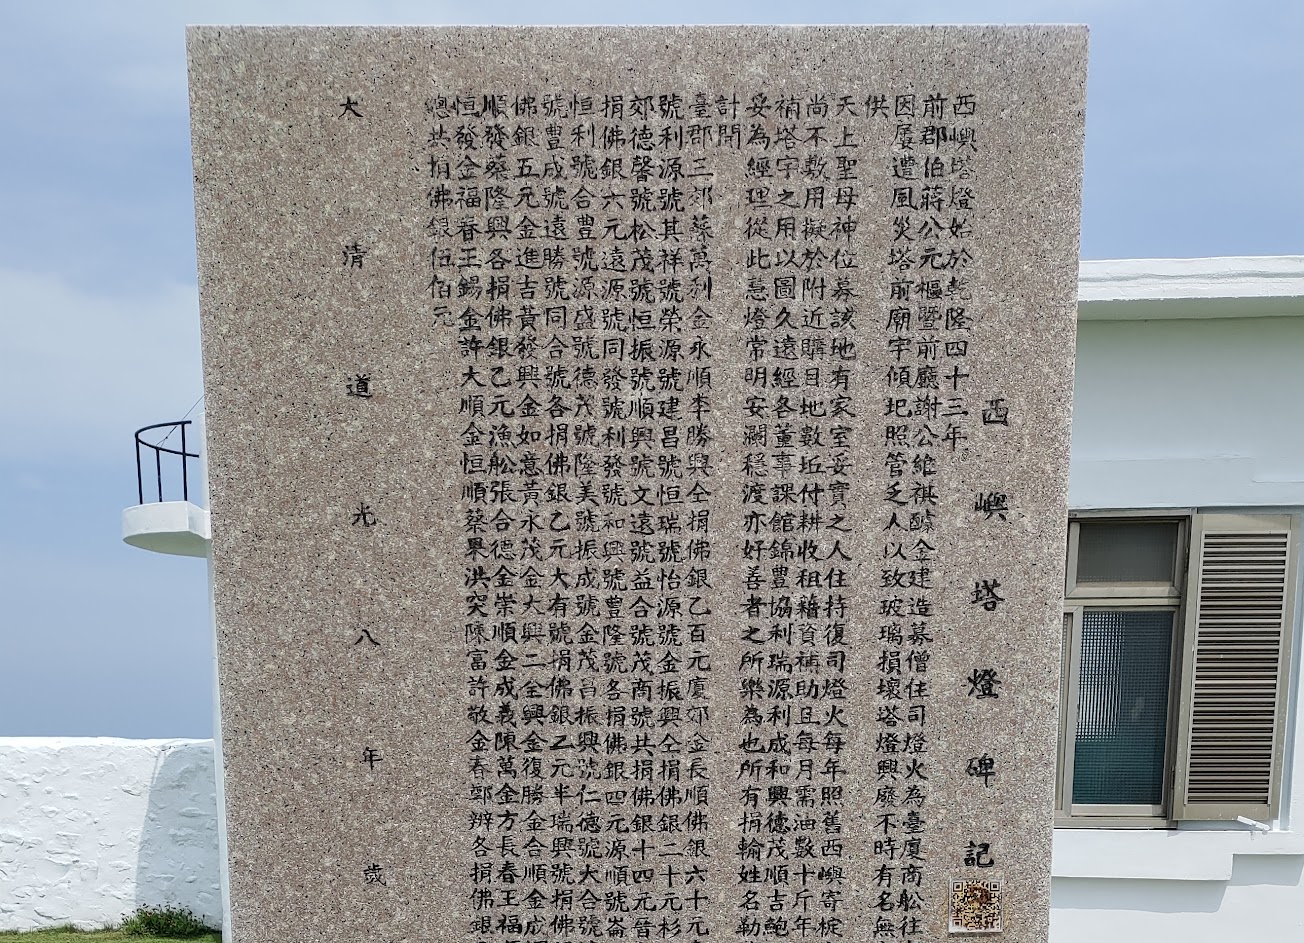 西嶼塔燈碑記
西嶼塔燈始於乾隆四十三年
前郡伯蔣公元樞暨前廳謝公維祺醵金建造募僧住司燈火為臺廈商舩往
因屢遭風災塔前廟宇傾圮照管乏人以致玻璃損壞塔燈興廢不時有名無
供
天上聖母神位募該地有家室妥實之人住持復司燈火每年照舊西嶼寄椗
尚不敷用擬於附近購目地數坵付耕收租藉資補助且每月需油數十斤年
補塔宇之用以圖久遠經各董事課館錦豐協利瑞源利成和興德茂順吉鮑
妥為經理從此慧燈常明安瀾穩渡亦好善者之所樂為也所有捐輸姓名勒
計開
臺郡三郊蔡萬利金永順李勝興仝捐佛銀乙百元廈郊金長順佛銀六十元
號利源號其祥號榮源號建昌號恒瑞號怡源號金振興仝捐佛銀二十元杉
郊德馨號松茂號恒振號順興號文遠號益合號茂商號共捐佛銀十四元晉
捐佛銀六元遠源號同發號利發號和興號豐隆號各捐佛銀四元源順號崙
恒利號合豐號源盛號德茂號隆美號振成號金茂昌振興號仁德號大合號
號豐成號遠勝號同合號各捐佛銀乙元大有號捐佛銀乙元半瑞興號捐佛
佛銀五元金進吉黃發興金如意黃永茂金大興二仝興金復勝金合順金成
順發蔡隆興各捐佛銀乙元漁舩張合德金崇順金成義陳萬金方長春王福
恒發金福春王錫金許大順金恒順蔡果洪突陳富許敬金春郭辦各捐佛銀
總共捐佛銀伍佰元
大清道光八年歲